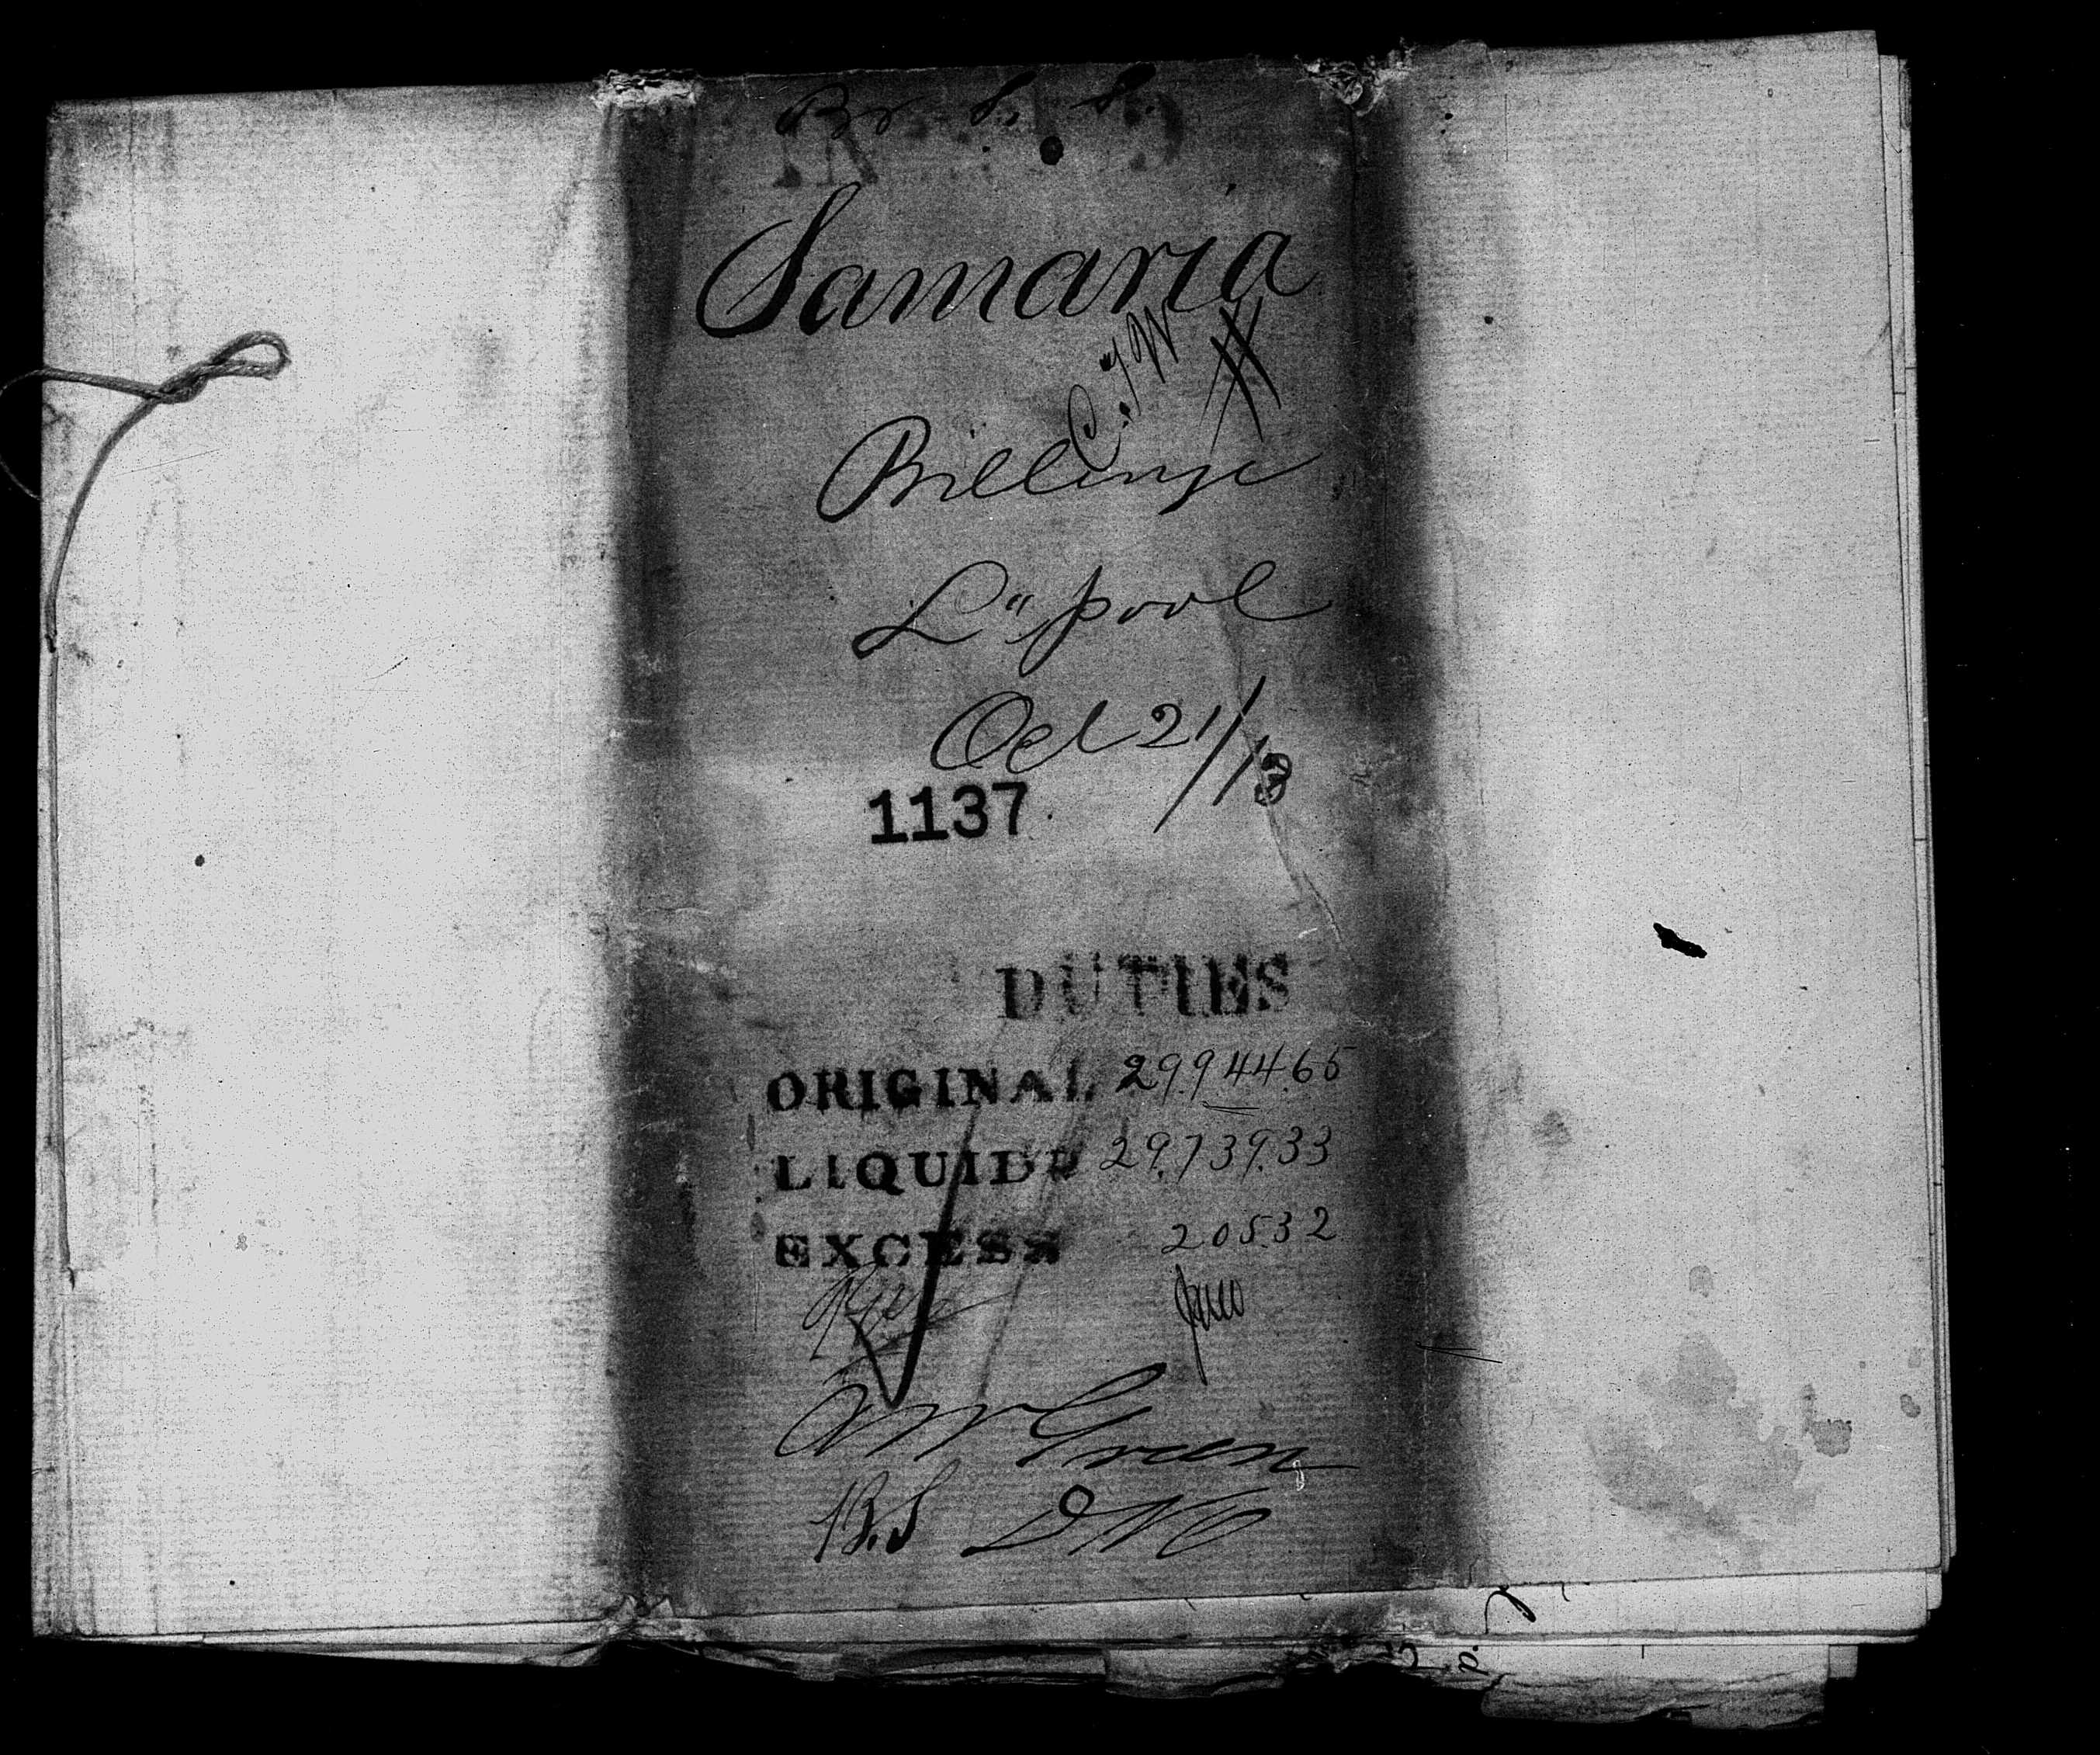 Br S. S.
Samaria
C. F. W.
Billinge
L"pool
Oct 21/13
1137
DUTIES
ORIGINAL 29.944.65
LIQUIDD 29.739.33
EXCESS 205.32
Green
B.S DNO
p.